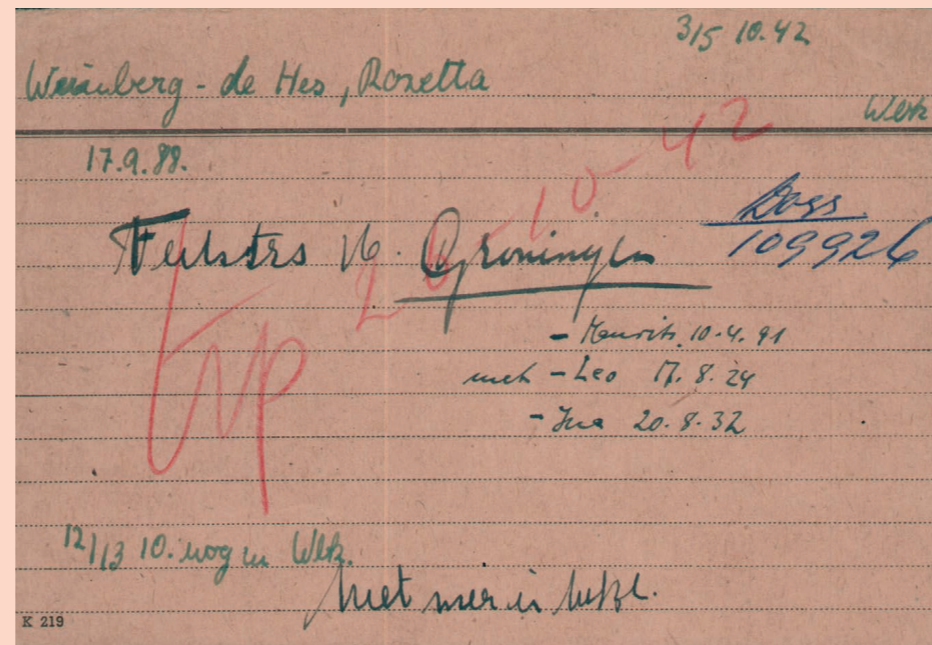 3/5 10.42
Weinberg - de Hes, Rozetta
Westr
17.9.88.
Folstrs 16. Groningen
Doss.
109926
trp 26-10-42
- Maurits 10.4.91
met - Leo 17.8.24
- Ina 20.8.32
12/13 10. nog in Wbk.
Niet meer in
K 219